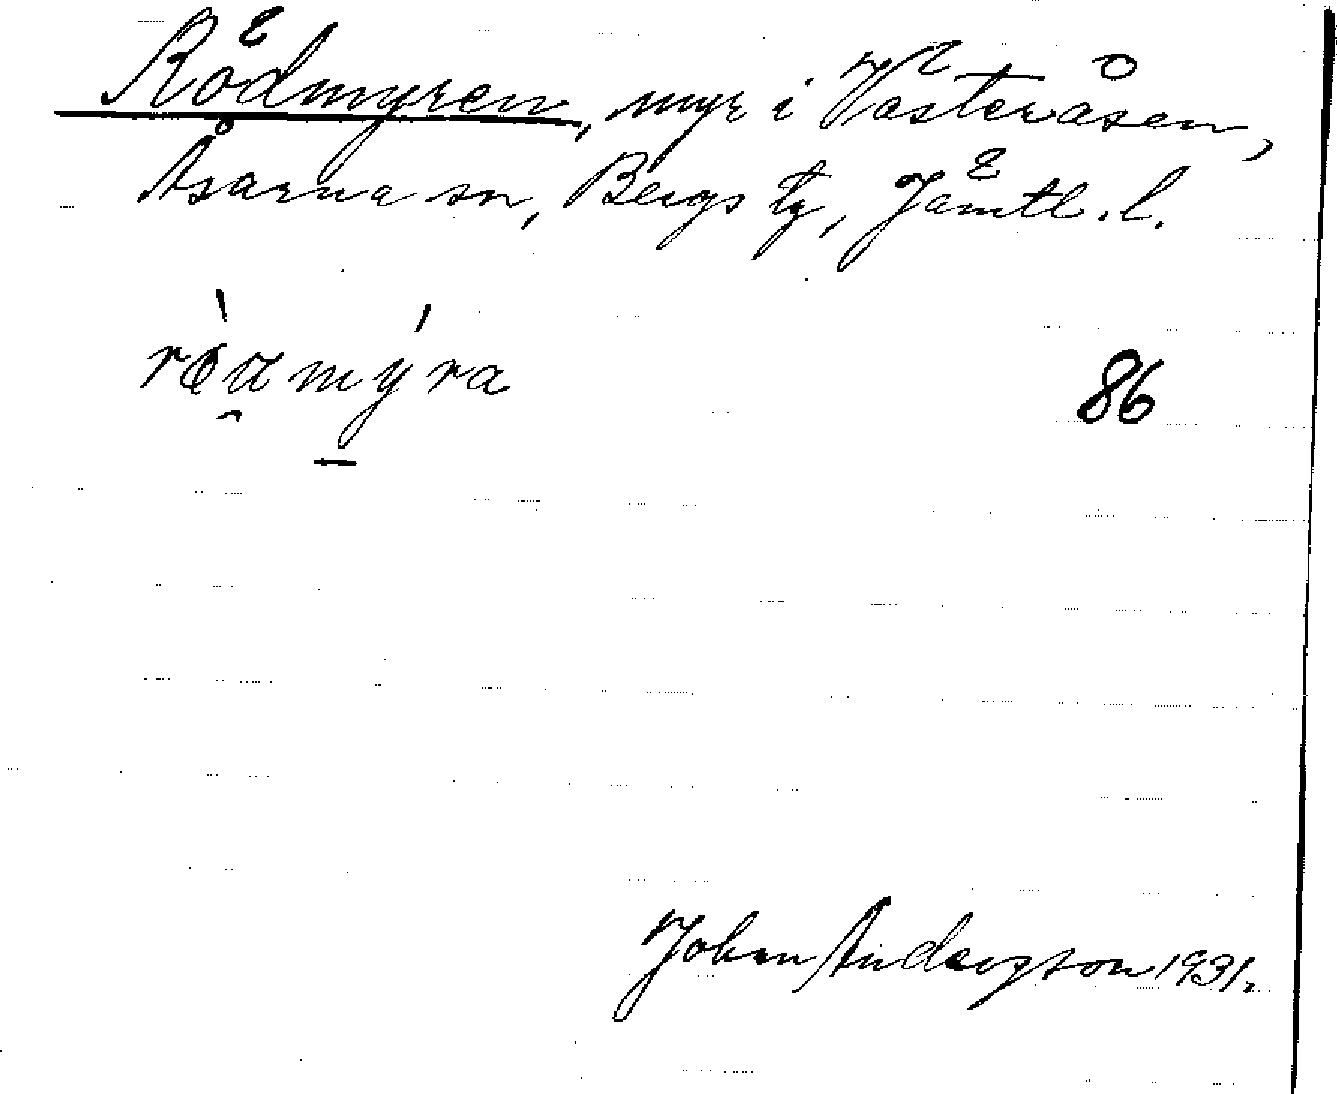 Rödmyren, myr i Västeråsen,
Åsarna sn, Bergs tg, Jämtl. l.
86
Johan Anderson 1931.